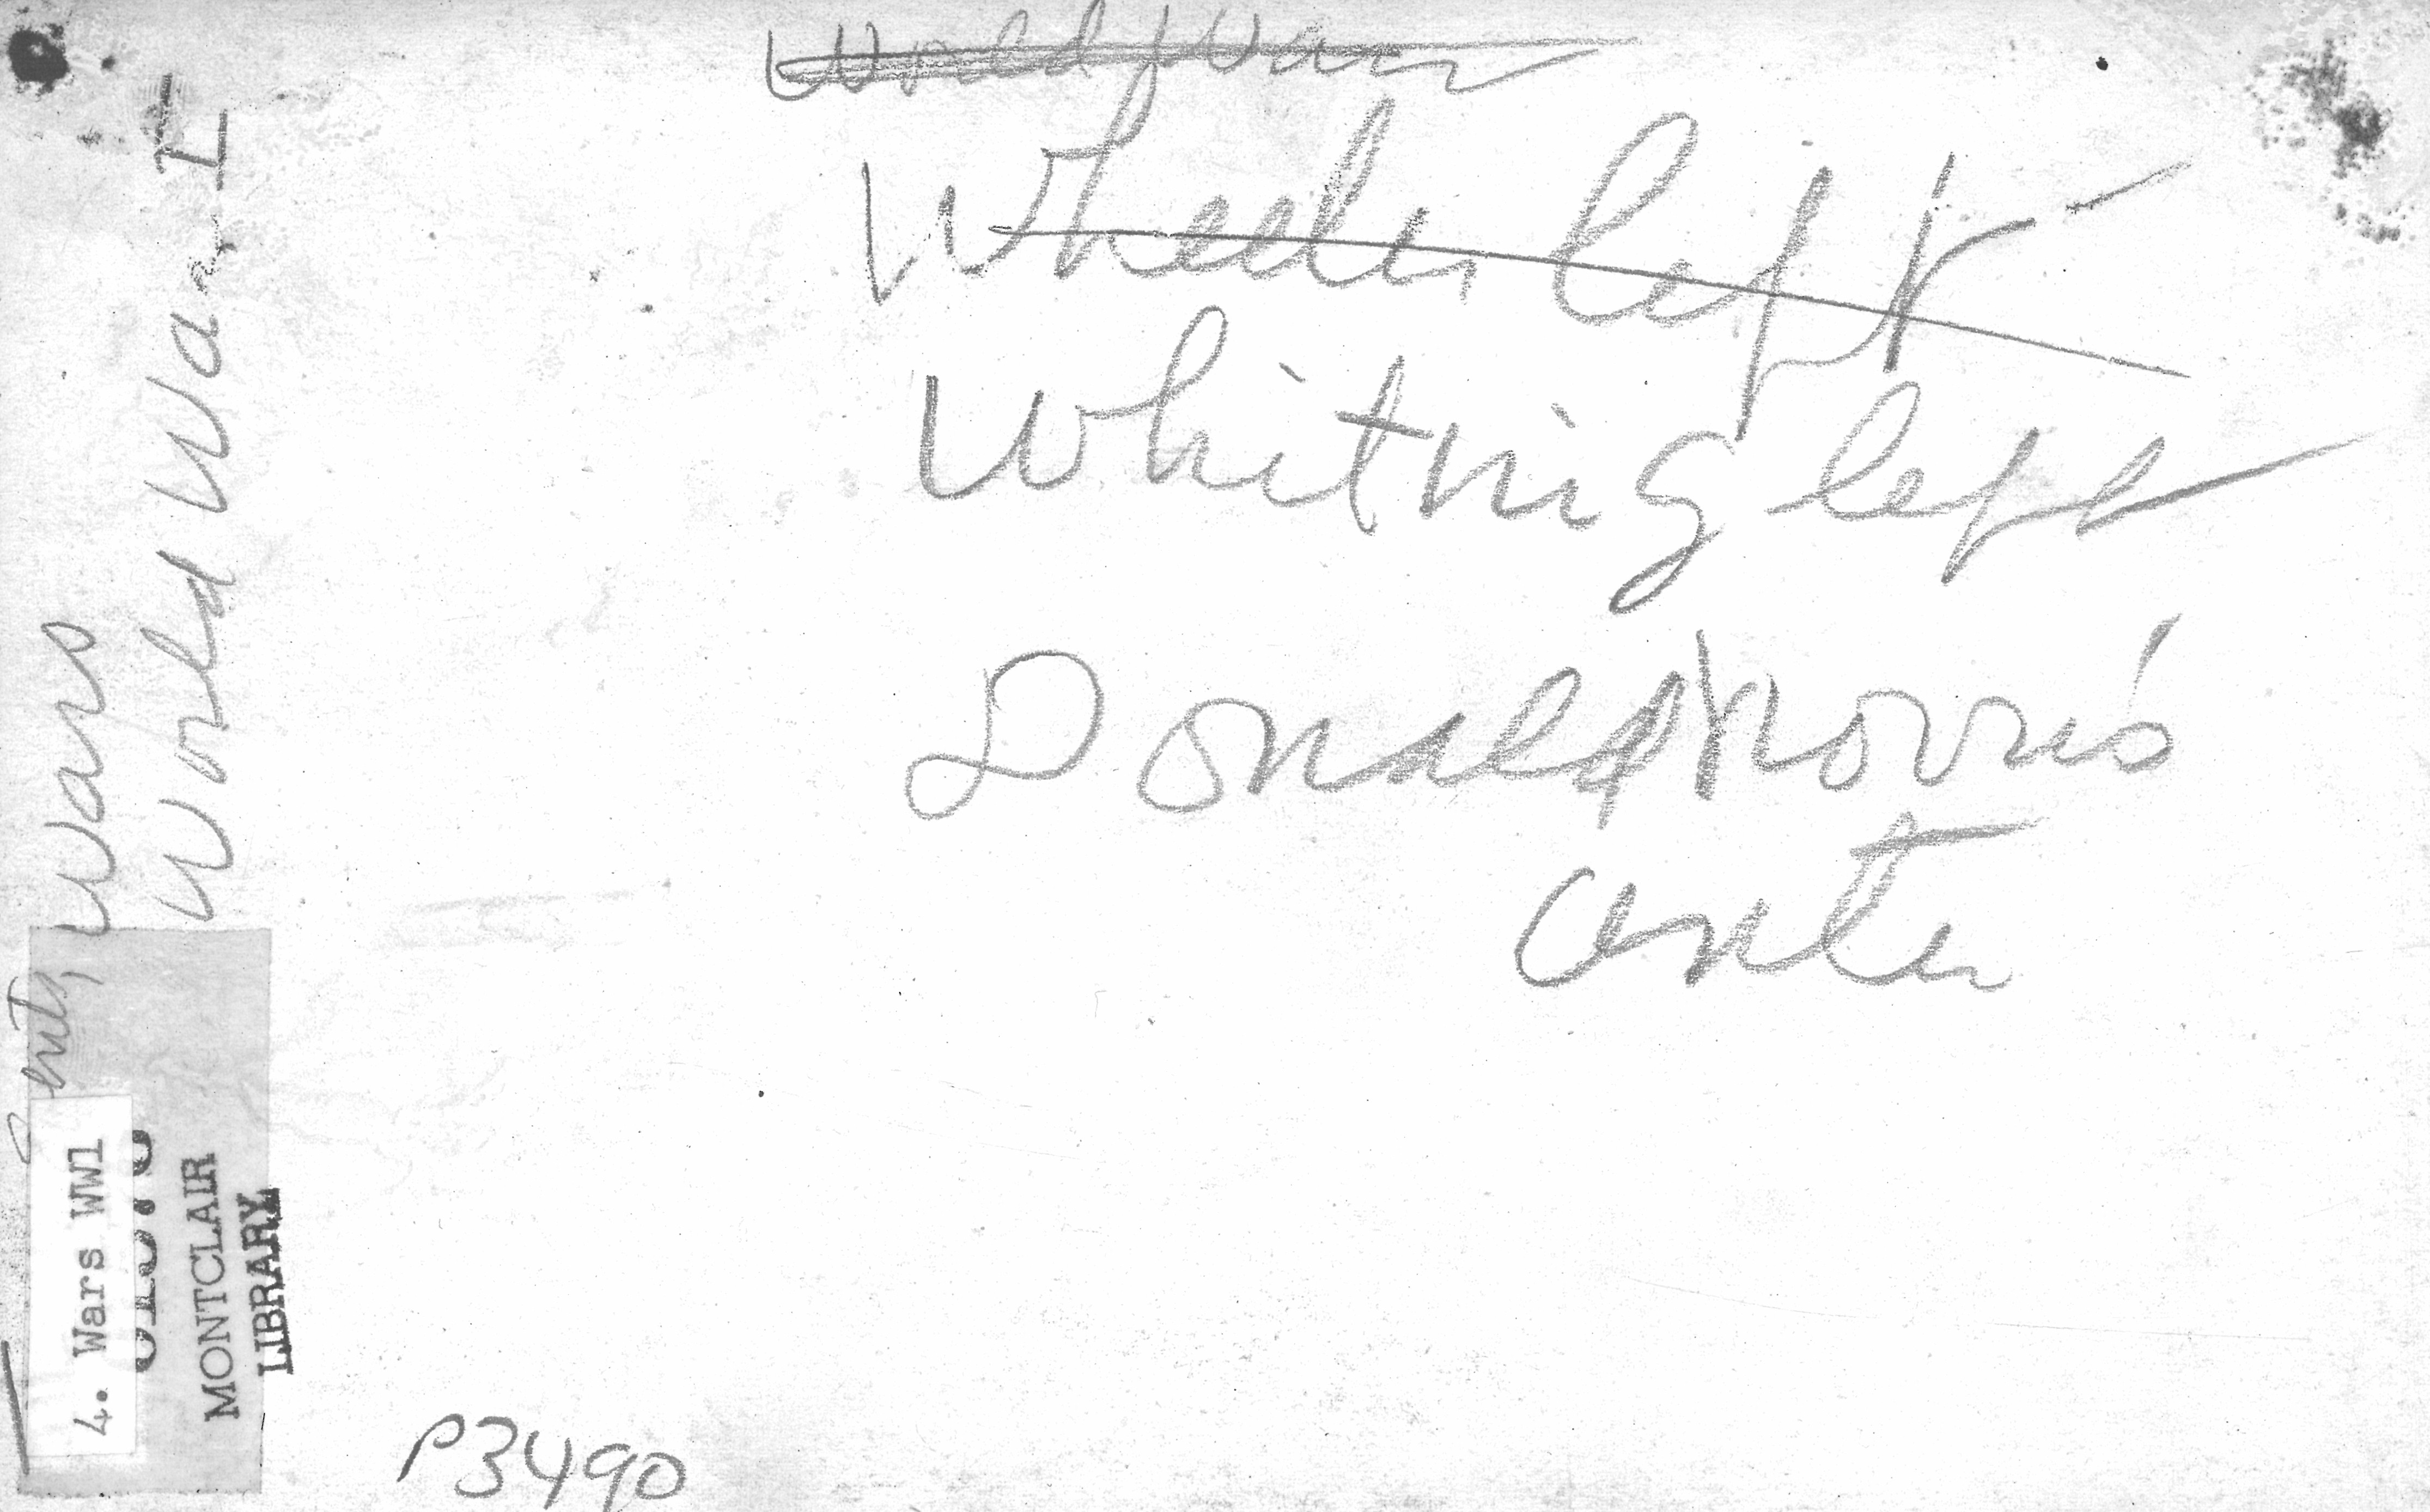 World War
Wheeler left
Whiting left
Donald Norris
Center
Wars
World War I
4. Wars WW1
MONTCLAIR
LIBRARY
P3490